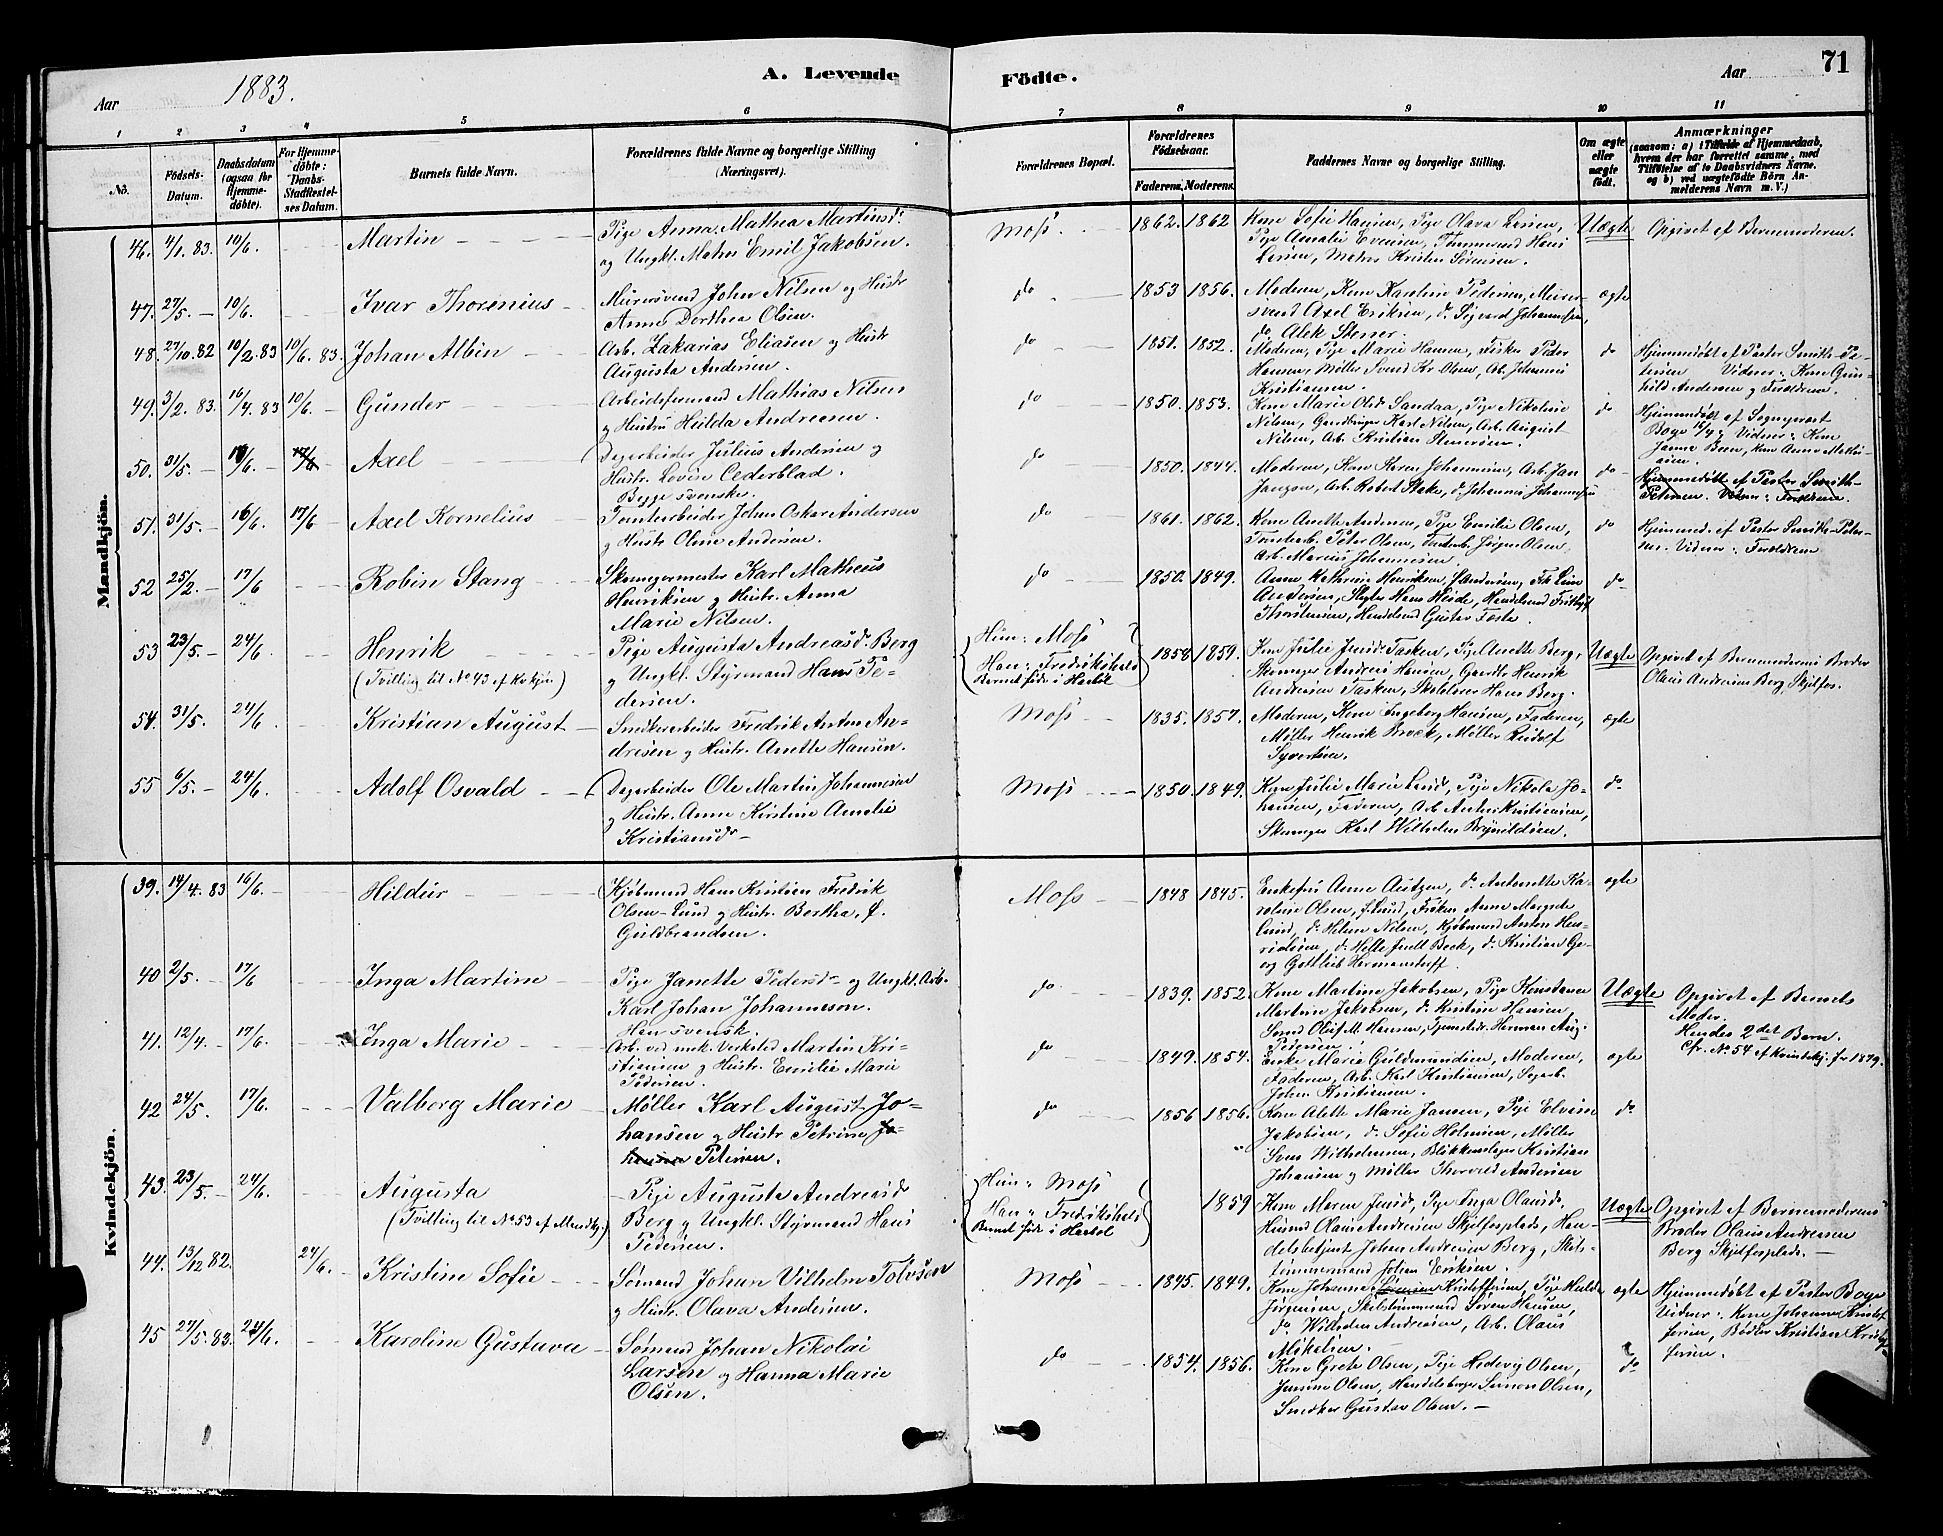 71
Aar 1883. A. Levende Födte. Aar
1 2 3 4 5 6 7 8 9 10 11
No. Födsels-Datum. Daabsdatum (ogsaa for Hjemmedöbte). For Hjemmedöbte: Daabs-Stadfæstelses Datum. Barnets fulde Navn. Forældrenes fulde Navne og borgerlige Stilling (Næringsvei). Forældrenes Bopæl. Forældrenes Födselsaar. Faderens. Moderens. Faddernes Navne og borgerlige Stilling. Om ægte eller uægte födt. Anmærkninger (saasom: a) i Tilfælde af Hjemmedaab, hvem der har forrettet samme, med Tilföielse af to Daabsvidners Navne. og b) ved uægtefödte Börn Anmelderens Navn m. V.)
Mandkjön.
46. 4/1. 83. 10/6. Martin
Pige Anna Mathea Martinsd:
og Ungkl. Matros Emil Jakobsen.
Moss. 1862. 1862
Kone Sofie Hansen, Pige Olava Larsen,
Pige Amalie Evensen, Tømmermand Hans
Larsen, Matros Kristen Sørensen.
Uægte Opgivet af Barnemoderen.
47. 27/5. 10/6. Ivar Thorenius
Murersvend John Nilsen og Hustr
Anne Dorthea Olsen.
do 1853 1856.
Moderen, Kone Karoline Pedersen, Murer-
svend Axel Eriksen, do. Sigvard Johannesen,
do. Alek Stener.
ægte
48. 27/10. 82 10/2. 83 10/6. 83. Johan Albin
Arb. Zakarias Eliasen og Hustr
Augusta Andersen.
do 1851. 1852.
Moderen, Pige Marie Hansen, Fisker Peder
Hansen, Møller Svend Kr. Olsen, Arb. Johannes
Kristiansen.
do
Hjemmedøbt af Pastor Smith-Pe-
tersen Vidner: Kone Gun-
hild Andersen og Forældrene.
49. 3/2. 83. 16/4. 83 10/6. Gunder
Arbeidsformand Mathias Nilsen
og Hustru Hulda Andresen.
do 1850. 1853.
Kone Marie Olsd. Sandaa, Pige Nikoline
Nilsen, Gaardbruger Karl Nilsen, Arb. August
Nilsen, Arb. Kristian Stenersen.
do
Hjemmedøbt af Sogneprest
Boye 16/4. Vidner: Kone
50. 31/5. 10/6. 17/6 Axel
Dagarbeider Julius Andersen og
Hustr. Lovise Cederblad.
Begge svenske.
do 1850. 1844.
Moderen, Kone Karen Johannesen, Arb. Jan
Janzon, Arb. Robert Stake, do. Johannes Johannesen
do
Hjemmedøbt af Pastor Smith-
Petersen. Vidner: Forældrene.
51. 31/5. 16/6. 17/6 Axel Kornelius
Tomtearbeider Johan Oskar Andersen
og Hustr. Oline Andersen.
do 1861. 1862.
Kone Anette Andersen, Pige Emilie Olsen,
Tomtearb. Peter Olsen, Tomtearb. Jørgen Olsen,
Arb. Marius Johannesen.
do
Hjemmed. af Pastor Smith-Peter-
sen. Vidner: Forældrene
52 25/2. 17/6 Robin Stang
Skomagermester Karl Matheus
Henriksen og Hustr. Anna
Marie Nilsen.
do 1850. 1849.
Anne Kathrine Henriksen, f. Andersen, Frk. Lina
Andersen, Slagter Hans Heide, Handelsmd. Fritiof
Thorstensen, Handelsmd Gustav Foste.
do
53 23/5. 24/6. Henrik
(Tvilling til No 43 af Kvkjøn)
Pige Augusta Andreasd. Berg
og Ungkl. Styrmand Hans Pe-
dersen.
Hun: Moss
Han: Fredrikshald
Barnet født i Hasløl
1858 1859.
Kone Julie Jensd. Tasken, Pige Anette Berg,
Skomager Andreas Hansen, Gaardbr. Henrik
Andresen Tasken, Skoledreng Hans Berg.
Uægte
Opgivet af Barnemoderens Broder
Olaus Andresen Berg Skjelfos.
54. 31/5. 24/6. Kristian August
Snedkerarbeider Fredrik Anton An-
dresen og Hustr. Anette Hansen.
Moss 1835. 1857.
Moderen, Kone Ingeborg Hansen, Faderen,
Møller Henrik Brock, Møller Rudolf
Syvertsen.
ægte
55 6/5. 24/6. Adolf Osvald
Dagarbeider Ole Martin Johannesen
og Hustr. Anne Kirstine Amalie
Kristiansd.
Moss 1850. 1849.
Kone Julie Marie Lund, Pige Nikola Jo-
hansen, Faderen, Arb. Anton Kristiansen,
Skomager Karl Wilhelm Brynildsen.
do
Kvindekjön.
39. 14/4. 83 16/6. Hildur
Kjøbmand Hans Kristian Fredrik
Olsen-Lund og Hustr. Bertha, f.
Guldbrandsen.
Moss 1848 1845.
Enkefru Anne Autzen, do. Antonette Ka-
roline Olsen, f. Lund, Frøken Anne Margrete
Lund, do. Helene Nilsen, Kjøbmand Anton Hen-
richsen, do. Helle Juell Beck, do. Kristian Ge-
org Gottlieb Hermanstorff.
ægte
40 2/5. 17/6 Inga Martine
Pige Janette Pedersd. og Ungkl. Arb.
Karl Johan Johannesson.
Han svensk.
do 1839. 1852.
Kone Martine Jakobsen, Pige Konstance
Martine Jakobsen, do. Kristine Hansen,
Sømd Oluf M. Hansen, Tjenestedr. Herman Aug.
Pedersen.
Uægte
Opgivet af Barnets
Moder.
Hendes 2det Barn.
Cfr. No. 54 af Kvindekj. for 1879.
41. 12/4. 17/6. Inga Marie
Arb. ved mek. Verksted Martin Kri-
stiansen og Hustr. Emilie Marie
Pedersen.
do 1849. 1854.
Enke Marie Guldmundsen, Moderen,
Faderen, Arb. Karl Kristiansen, Sagarb.
Johan Kristiansen.
ægte
42 24/5. 17/6. Valborg Marie
Møller Karl August Jo-
hansen og Hustr. Petrine Jo-
hansen Petersen.
do 1856 1856.
Kone Alette Marie Jansen, Pige Elvine
Jakobsen, do. Sofie Holmsen, Møller
Sven Wilhelmsen, Blikkenslager Kristian
Johansen og Møller Thorvald Andersen
do
43. 23/5. 24/6. Augusta
(Tvilling til No 53 af Mandkj.)
Pige Augusta Andreasd.
Berg og Ungkl. Styrmand Hans
Pedersen.
Hun: Moss
Han: Fredrikshald
Barnet født i Hasløl
1859
Kone Maren Jensd., Pige Inga Olausd.
Husmd Olaus Andresen Skjelfosplads, Han-
delsbetjent Johan Andresen Berg, Skibs-
tømmermand Johan Eriksen.
Uægte
Opgivet af Barnemoderens
Broder Olaus Andresen
Berg Skjelfosplads.
44. 13/12 82. 24/6. Kristine Sofie
Sømand Johan Vilhelm Tolvson
og Hustr. Olava Andersen.
Moss 1845. 1849.
Kone Johanne Sørensen Kristoffersen, Pige Hulda
Jørgensen, Skibstømmermand Søren Hansen,
do. Wilhelm Andresen, Arb. Olaus
Mikelsen.
ægte
Hjemmedøbt af Pastor Boye
Vidner: Kone Johanne Kristof-
fersen, Bødker Kristian Kristof-
fersen.
45 27/5. 83. 24/6. Karoline Gustava
Sømand Johan Nikolai
Larsen og Hanna Marie
Olsen.
do 1854. 1856.
Kone Grete Olsen, Pige Hedevig Olsen,
Jensine Olsen, Handelsborger Simon Olsen,
Snedker Gustav Olsen.
do